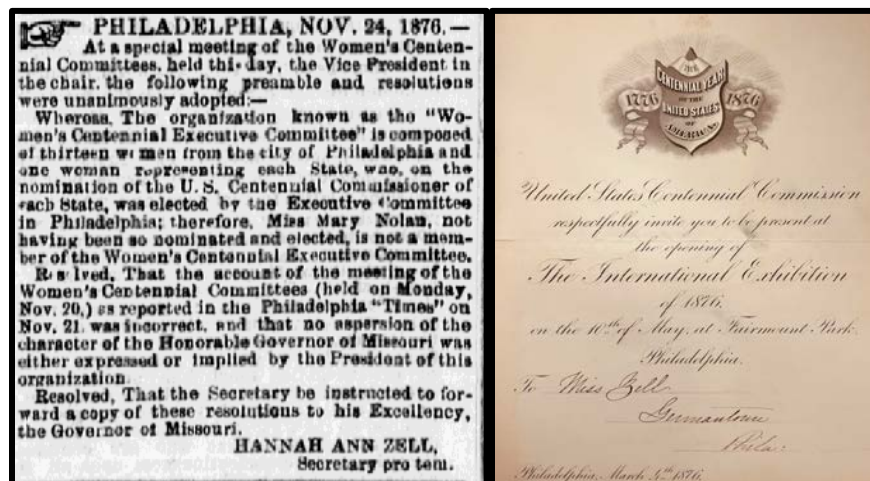 PHILADELPHIA, NOV. 24, 1876.—
At a special meeting of the Women's Centen-
nial Committees, held this day, the Vice President in
the chair, the following preamble and resolutions
were unanimously adopted:—
Whereas, The organization known as the "Wo-
men's Centennial Executive Committee" is composed
of thirteen women from the city of Philadelphia and
one woman representing each State, who, on the
nomination of the U. S. Centennial Commissioner of
each State, was elected by the Executive Committee
in Philadelphia; therefore, Miss Mary Nolan, not
having been so nominated and elected, is not a mem-
ber of the Women's Centennial Executive Committee.
Resolved, That the account of the meeting of the
Women's Centennial Committees (held on Monday,
Nov. 20,) as reported in the Philadelphia "Times" on
Nov. 21, was incorrect, and that no aspersion of the
character of the Honorable Governor of Missouri was
either expressed or implied by the President of this
organization.
Resolved, That the Secretary be instructed to for-
ward a copy of these resolutions to his Excellency,
the Governor of Missouri.
HANNAH ANN ZELL,
Secretary pro tem.
CENTENNIAL YEAR
1776 OF THE 1876
UNITED STATES
OF
AMERICA
United States Centennial Commission
respectfully invite you to be present at
the opening of
The International Exhibition
of 1876,
on the 10th of May, at Fairmount Park,
Philadelphia.
To Miss Zell
Germantown
Phila:
Philadelphia, March 9th 1876.